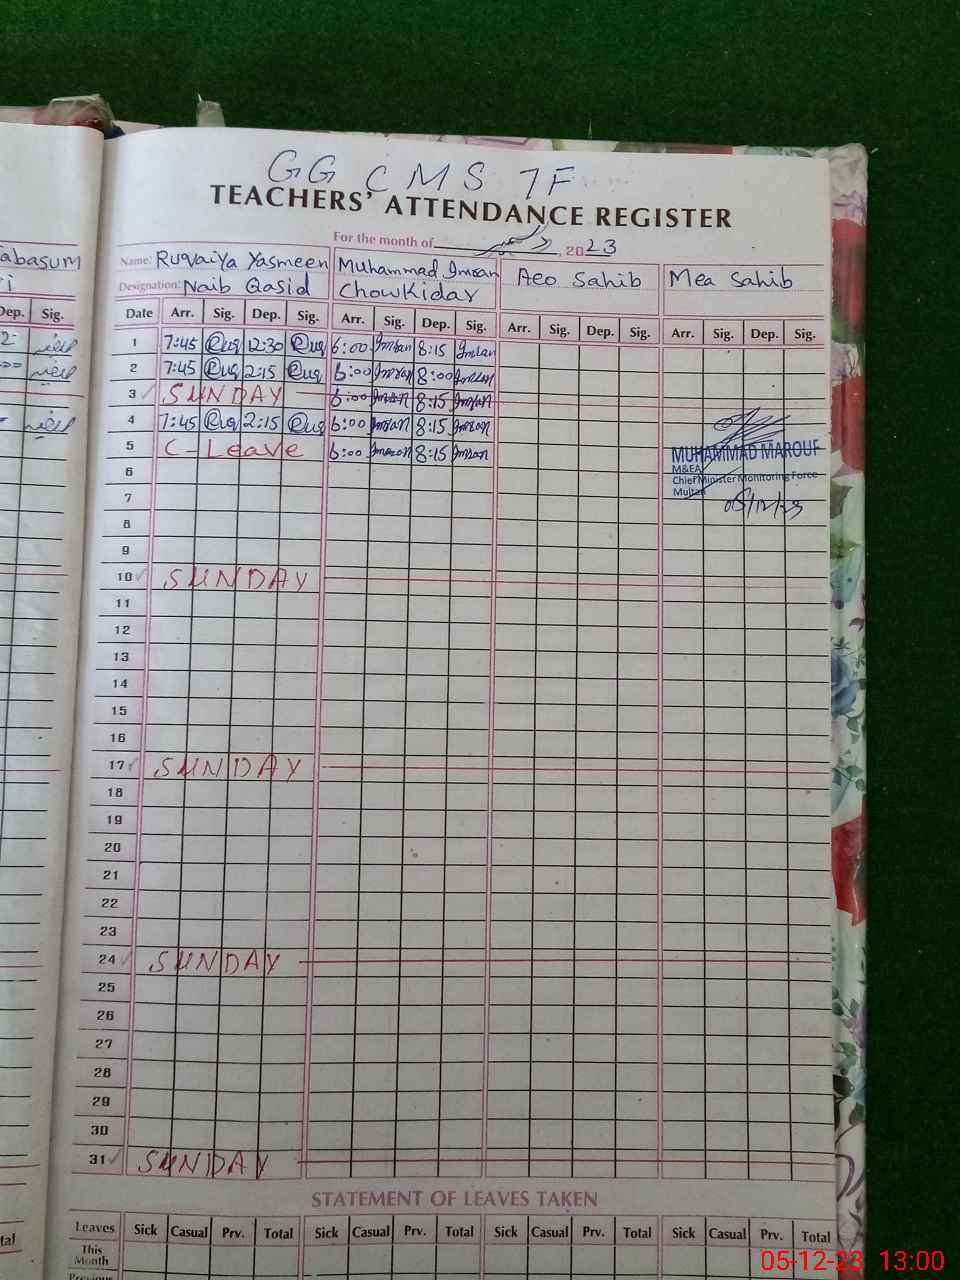 GG CMS 7F
TEACHERS' ATTENDANCE REGISTER
For the month of , 2023
abasum
Name: Ruqaiya Yasmeen Muhammad Imran Aeo Sahib Mea Sahib
Designation: Naib Qasid Chowkidar
Dep. Sig. Date Arr. Sig. Dep. Sig. Arr. Sig. Dep. Sig. Arr. Sig. Dep. Sig. Arr. Sig. Dep. Sig.
1 7:45 Ruq 12:30 Ruq 6:00 Imran 8:15 Imran
2 7:45 Ruq 2:15 Ruq 6:00 Imran 8:00 Imran
3 SUNDAY 6:00 Imran 8:15 Imran
4 7:45 Ruq 2:15 Ruq 6:00 Imran 8:15 Imran
5 C-Leave 6:00 Imran 8:15 Imran
MUHAMMAD MAROUF
M&EA
Chief Minister Monitoring Force
Multan
05/12/23
6
7
8
9
10 SUNDAY
11
12
13
14
15
16
17 SUNDAY
18
19
20
21
22
23
24 SUNDAY
25
26
27
28
29
30
31 SUNDAY
STATEMENT OF LEAVES TAKEN
Leaves Sick Casual Prv. Total Sick Casual Prv. Total Sick Casual Prv. Total Sick Casual Prv. Total
This
Month
Previous
05-12-23 13:00